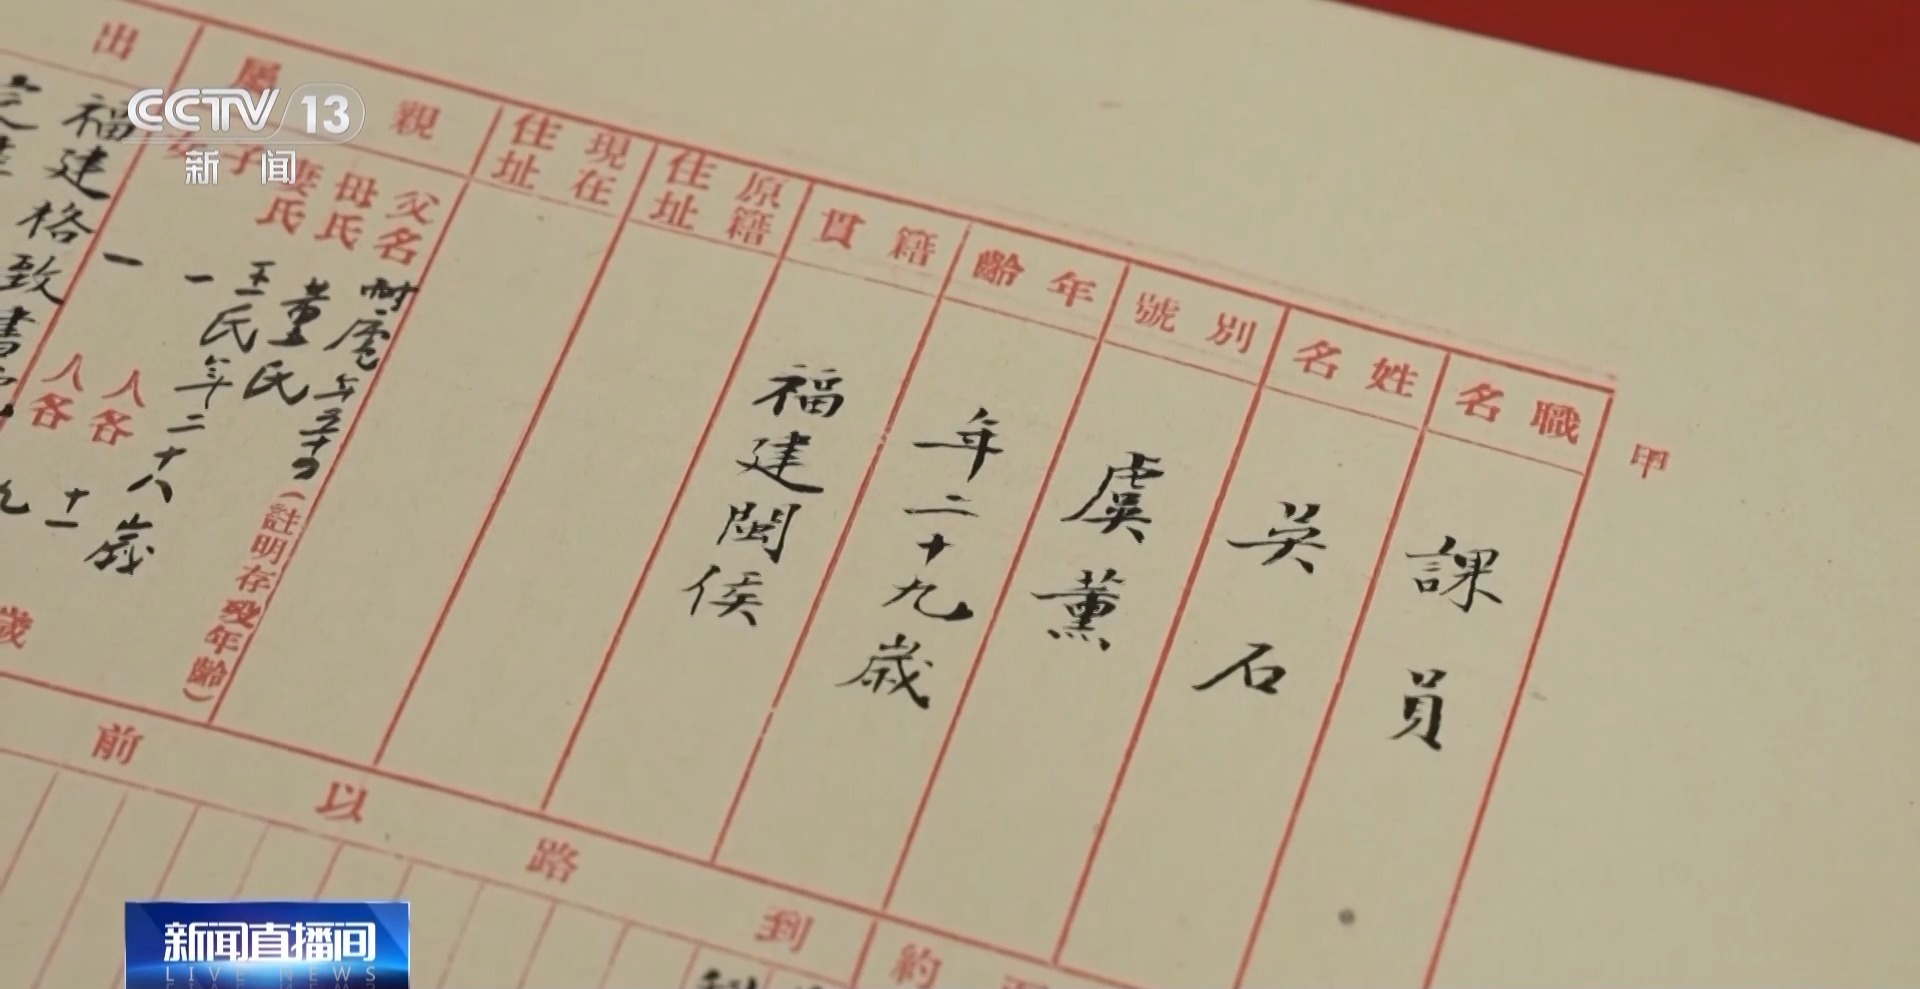 CCTV 13
新闻
甲
職名
課員
姓名
吴石
別號
虞薰
年齡
年二十九歲
籍貫
福建閩侯
原籍住址
現在住址
親屬
父名
年五十
(註明存歿年齡)
母氏
董氏
妻氏
王氏年二十八歲
子
一
人各
十一
女
一
人各
九
歲
出
福建格致書
到路以前
約
新闻直播间
LIVE NEWS